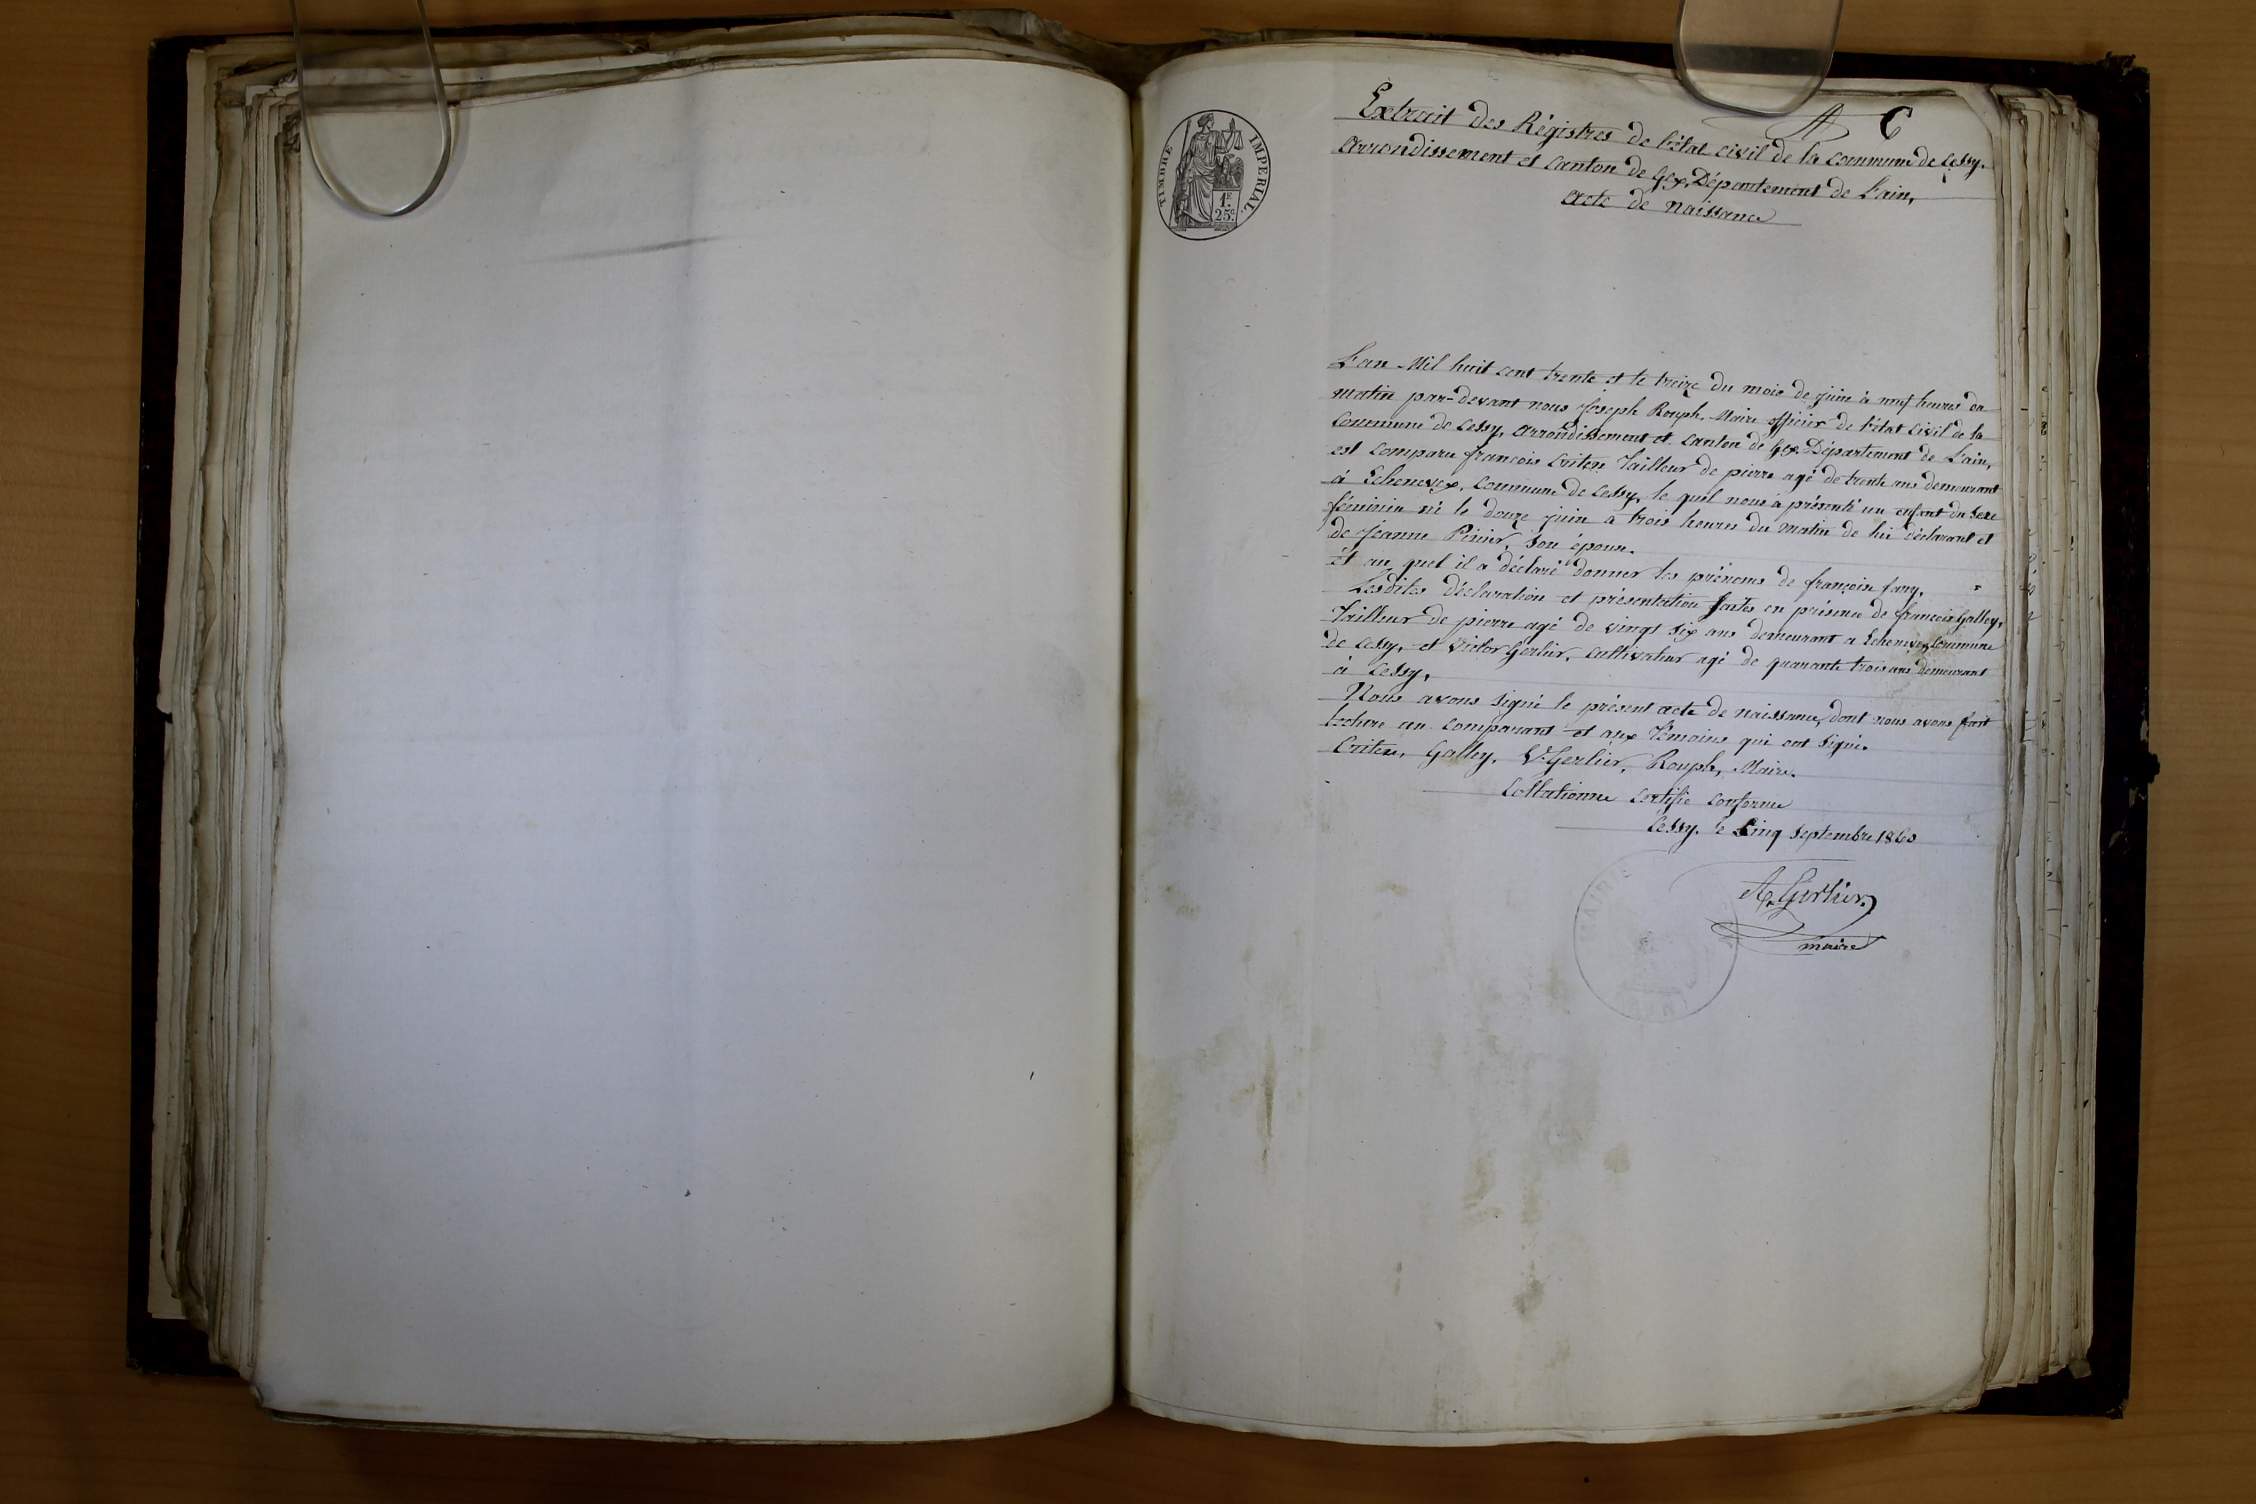 A C
TIMBRE IMPERIAL.
1F.
25c.
Extrait des Régistres de l'état civil de la commune de Cessy.
Arrondissement et Canton de Gex, Département de L'ain,
Acte de Naissance
L'an Mil huit cent trente et le treize du mois de juin à neuf heures du
matin par-devant nous Joseph Rouph, Maire officier de l'état civil de la
Commune de Cessy, Arrondissement et Canton de Gex Département de L'ain,
est comparu françois Tailleur de pierre agé de trente ans demeurant
à Echenevex, Commune de Cessy, le quel nous a présenté un enfant du sexe
féminin né le douze juin à trois heures du matin de lui déclarant et
de Jeanne son épouse.
Et au quel il a déclaré donner les prénoms de françoise fany.
Lesdites déclaration et présentation faites en présence de françois Galley,
Tailleur de pierre agé de vingt six ans demeurant a Echenevex, Commune
de Cessy, et Victor Gerlier, cultivateur agé de quarante trois ans demeurant
à Cessy,
Nous avons signé le présent acte de naissance, dont nous avons fait
lecture au comparant et aux témoins qui ont signé.
Galley, V. Gerlier, Rouph, Maire.
Collationné certifié conforme
Cessy, le Cinq Septembre 1860
A. Gerlier
maire
MAIRIE